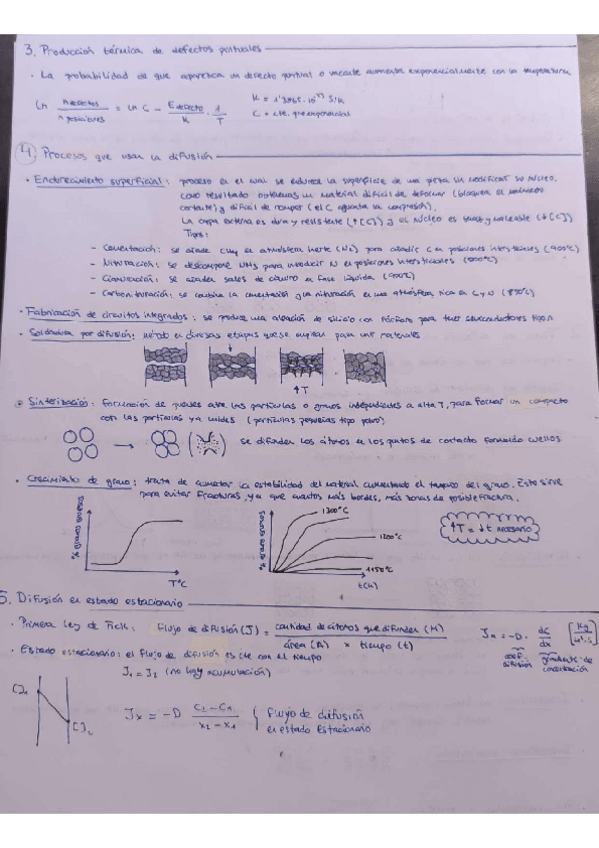 3. Producción térmica de defectos puntuales
· La probabilidad de que aparezca un defecto puntual o vacante aumenta exponencialmente con la temperatura
Ln n defectos / n posiciones = Ln C - E defecto / K · 1 / T
C = cte. preexponencial
4. Procesos que usan la difusión
· Endurecimiento superficial: proceso en el cual se endurece la superficie de una pieza sin modificar su núcleo.
como resultado obtenemos un material difícil de deformar (bloquea el
cortante) y difícil de romper (el C aguanta la compresión).
La capa externa es dura y resistente (↑[C]) y el núcleo es y maleable (↓[C])
Tipos:
- Cementación: se añade CH4 en atmósfera inerte (N2) para añadir C en posiciones intersticiales (900°C)
- Nitruración: se descompone NH3 para introducir N en posiciones intersticiales
- Cianuración: se añaden sales de cianuro en fase líquida
- Carbonitruración: se combina la cementación y la nitruración en una atmósfera rica en C y N
· Fabricación de circuitos integrados: se produce una de silicio con fósforo para tener semiconductores tipo n
· Soldadura por difusión: método en diversas etapas que se emplea para unir materiales
↑T
Sinterización: formación de puentes entre las partículas o granos independientes a alta T, para formar un compacto
con las partículas ya unidas (partículas pequeñas tipo polvo)
se difunden los átomos en los puntos de contacto formando cuellos
· Crecimiento de grano: trata de aumentar la estabilidad del material aumentando el tamaño del grano. Esto sirve
para evitar fracturas, ya que cuantos más bordes, más zonas de posible fractura.
T°C
1300°C
1200°C
1150°C
t(h)
↑T = ↓t necesario
5. Difusión en estado estacionario
· Primera Ley de Fick: Flujo de difusión (J) = cantidad de átomos que difunden (M) / área (A) × tiempo (t)
Jx = -D · dC / dx [Kg / m²·s]
coef. difusión
gradiente de concentración
· Estado estacionario: el flujo de difusión es cte con el tiempo
J1 = J2 (no hay acumulación)
[]1
[]2
Jx = -D C2 - C1 / x2 - x1 { flujo de difusión
en estado estacionario